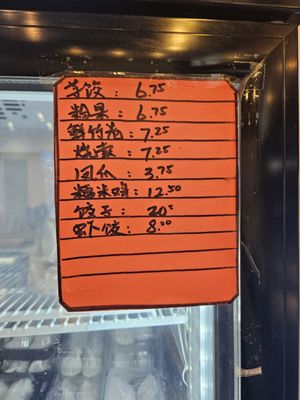 粉果: 6.75
鲜竹卷: 7.25
烧卖: 7.25
凤爪: 3.75
糯米鸡: 12.50
饺子: 20
虾饺: 8.50